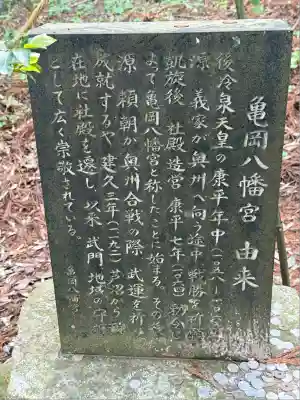 亀岡八幡宮 由来
後冷泉天皇の康平年中(一〇五八~一〇六
源 義家が奥州へ向う途中 戦勝を祈願
凱旋後 社殿造営 康平七年(一〇六四)勅
よって亀岡八幡宮と称したことに始まる。その
源 頼朝が奥州合戦の際 武運を祈
成就するや 建久三年(一一九二)芦沼から
在地に社殿を遷し、以来 武門 地域の守護
として広く崇敬されている。
亀岡八幡宮